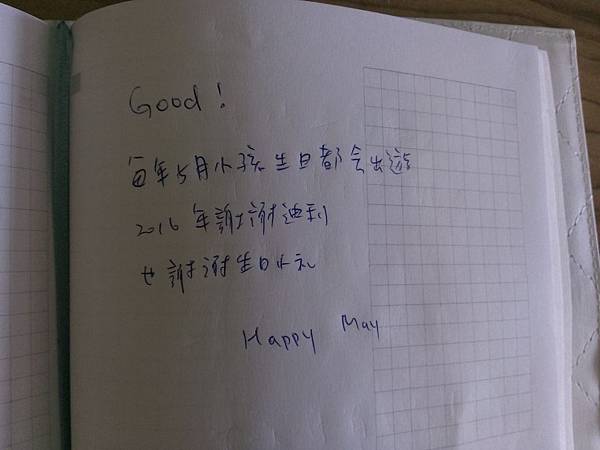 Good!
每年5月小孩生日都会出遊
2016年謝謝迪利
也謝謝生日小礼
Happy May